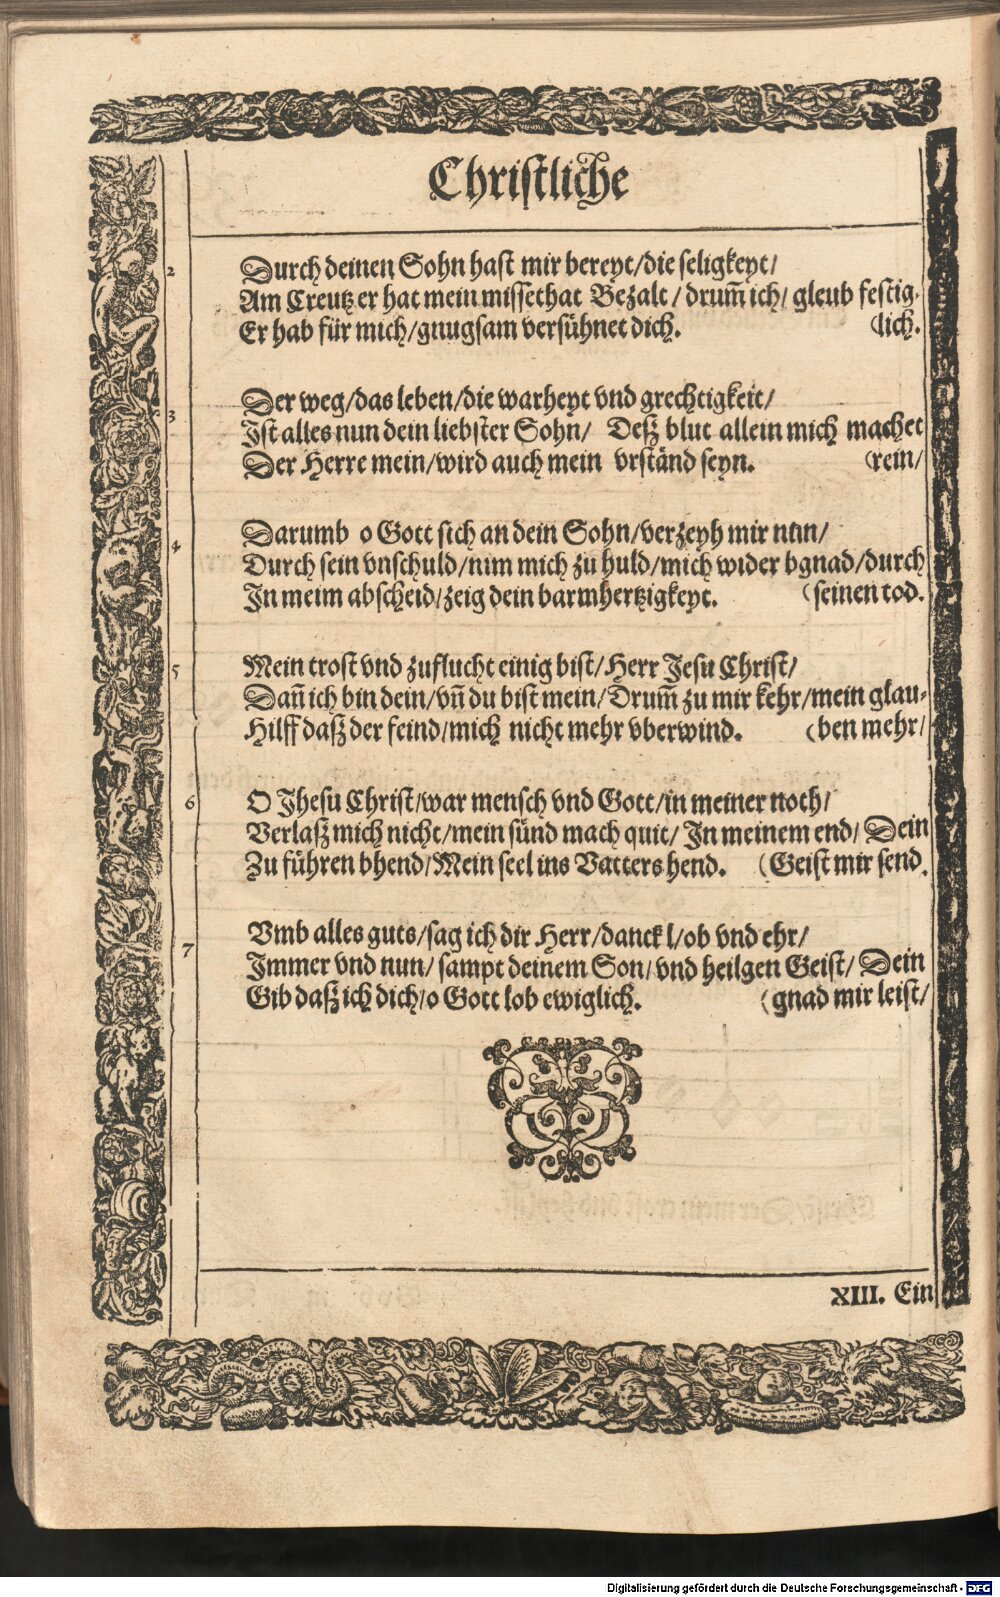 Christliche
2 Durch deinen Sohn hast mir bereyt/die seligkeyt/
Am Creutz er hat mein missethat Bezalt / drum̄ ich/ gleub festig-
Er hab für mich/gnugsam versühnet dich. (lich.
3 Der weg/das leben/die warheyt vnd grechtigkeit/
Ist alles nun dein liebster Sohn/ Deß blut allein mich machet
Der Herre mein/wird auch mein vrständ seyn. (rein/
4 Darumb o Gott sich an dein Sohn/verzeyh mir nun/
Durch sein vnschuld/nim mich zu huld/mich wider bgnad/durch
In meim abscheid/zeig dein barmhertzigkeyt. (seinen tod.
5 Mein trost vnd zuflucht einig bist/Herr Jesu Christ/
Dañ ich bin dein/vñ du bist mein/Drum̄ zu mir kehr/mein glau-
Hilff daß der feind/mich nicht mehr vberwind. (ben mehr/
6 O Jhesu Christ/war mensch vnd Gott/in meiner noth/
Verlaß mich nicht/mein sünd mach quit/ In meinem end/ Dein
Zu führen bhend/Mein seel ins Vatters hend. (Geist mir send.
7 Vmb alles guts/sag ich dir Herr/danck l/ob vnd ehr/
Immer vnd nun/ sampt deinem Son/vnd heilgen Geist/ Dein
Gib daß ich dich/o Gott lob ewiglich. (gnad mir leist/
XIII. Ein
Digitalisierung gefördert durch die Deutsche Forschungsgemeinschaft - DFG